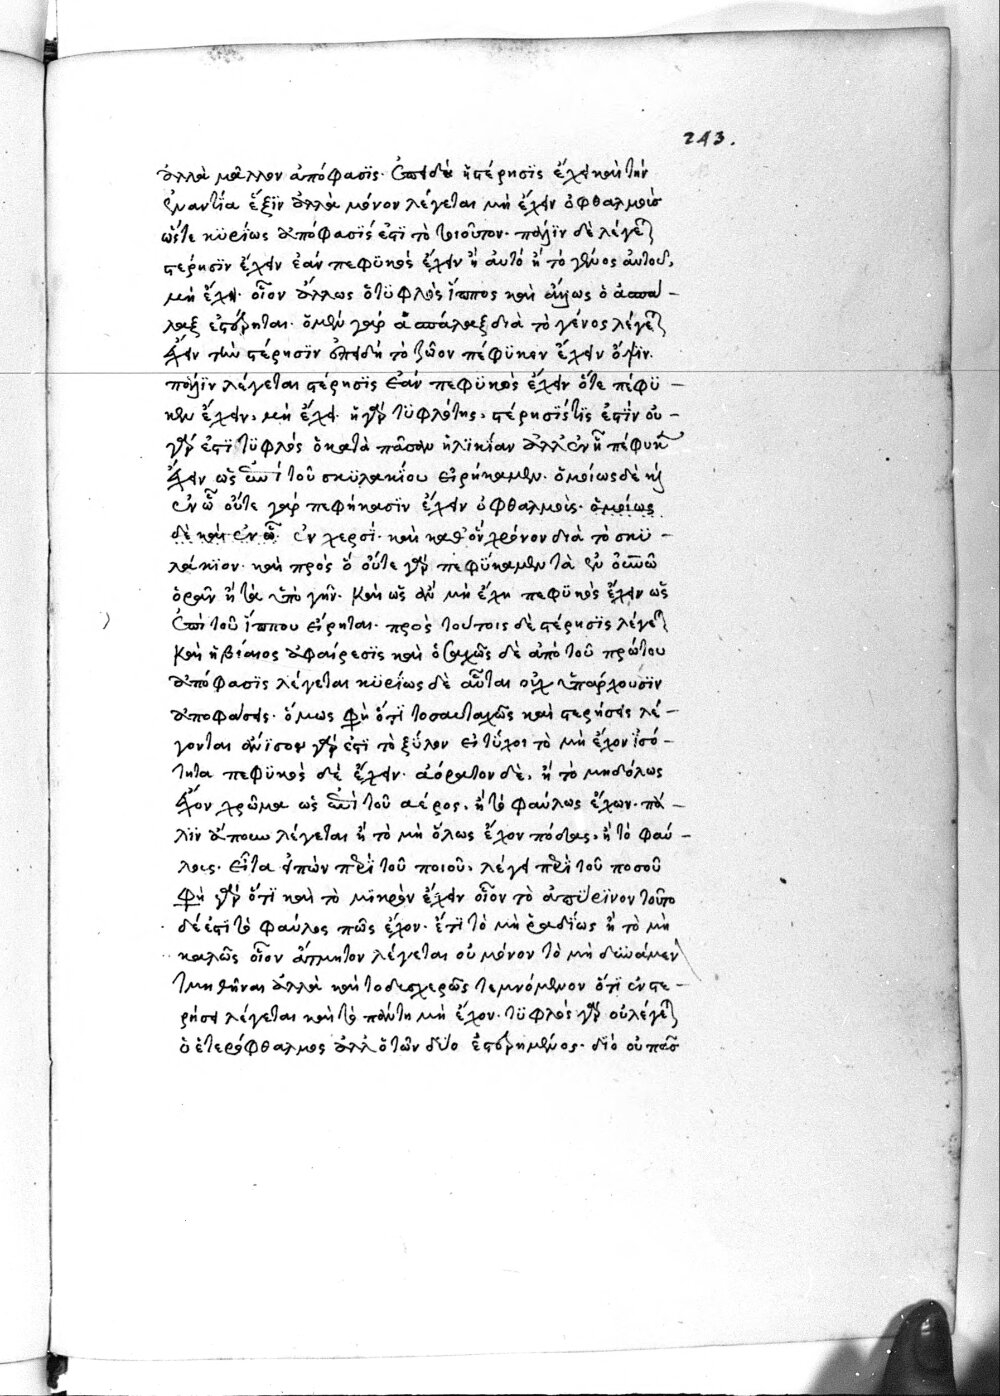 243.
ἀλλὰ μᾶλλον ἀπόφασϊς. ἐπειδὴ ἡ στέρησϊς ἔχει καὶ τὴν
ἐναντία ἕξϊν ἀλλὰ μόνον λέγεται μὴ ἔχειν ὀφθαλμοὺς
ὥστε κϋρίως ἀπόφασϊς ἐστϊ τὸ τοιοῦτον. πάλϊν δὲ λέγεται
στέρησϊν ἔχειν ἐὰν πεφϋκὸς ἔχειν ἢ αὐτὸ ἢ τὸ γένος αὐτοῦ,
μὴ ἔχη. οἷον ἄλλως ὁ τϋφλὸς ἵππος καὶ ἄλλως ὁ ἀσπά-
λαξ ἐστέρηται. ὁ μὲν γὰρ ἀσπάλαξ διὰ τὸ γένος λέγεται
ἔχειν τὴν στέρησϊν ἐπειδὴ τὸ ζῶον πέφϋκεν ἔχειν ὄψϊν.
πάλϊν λέγεται στέρησϊς ἐὰν πεφϋκὸς ἔχειν ὅτε πέφϋ-
κεν ἔχειν, μὴ ἔχη. ἡ γὰρ τϋφλότης, στέρησϊς τϊς ἐστϊν οὐ
γάρ ἐστϊ τϋφλὸς ὁ κατὰ πᾶσαν ἡλϊκίαν ἀλλ' ἐν ἧ πέφυκεν
ἔχειν ὡς ἐπὶ τοῦ σκϋλακΐου εἰρήκαμεν. ὁμοίως δὲ καὶ
ἐν ὧ οὔτε γὰρ πεφήκασϊν ἔχειν ὀφθαλμοὺς. ὁμοίως
δὲ καὶ ἐν ὧ. ἐν χερσΐ. καὶ καθ' ὃν χρόνον διὰ τὸ σκϋ-
λάκϊον. καὶ πρὸς ὃ οὔτε γὰρ πεφϋκαμεν τὰ ἐν
ὁρᾶν ἢ τὰ ὑπὸ γῆν. καὶ ὡς ἂν μὴ ἔχη πεφϋκὸς ἔχειν ὡς
ἐπὶ τοῦ ἵππου εἴρηται. πρὸς τούτοις δὲ στέρησϊς λέγεται
καὶ ἡ βίαιος ἀφαίρεσϊς καὶ ὁσαχῶς δὲ ἀπὸ τοῦ πρώτου
ἀπόφασϊς λέγεται κϋρίως δὲ αὗται οὐχ ὑπάρχουσϊν
ἀποφάσεις. ὅμως φησὶ ὅτϊ τοσαυταχῶς καὶ στερήσεις λέ-
γονται ἄνϊσον γὰρ ἐπϊ τὸ ξύλον εἰ τύχοι τὸ μὴ ἔχον ἰσό-
τητα πεφϋκὸς δὲ ἔχειν. ἀόρατον δὲ, ἢ τὸ μηδόλως
ἔχον χρῶμα ὡς ἐπὶ τοῦ ἀέρος, ἢ τὸ φαύλως ἔχων. πά-
λϊν ἄπουν λέγεται ἢ τὸ μὴ ὅλως ἔχον πόδας, ἢ τὸ φαύ-
λους. εἶτα εἰπὼν περὶ τοῦ ποιοῦ, λέγει περὶ τοῦ ποσοῦ
φησὶ γὰρ ὅτϊ καὶ τὸ μϊκρὸν ἔχειν οἷον τὸ ἀπϋρϊνον τοῦτο
δέ ἐστϊ τὸ φαύλως πῶς ἔχον. ἔτϊ τὸ μὴ ῥαδίως ἢ τὸ μὴ
καλῶς οἷον ἄτμητον λέγεται οὐ μόνον τὸ μὴ δϋνάμενον
τμηθῆναι ἀλλὰ καὶ τὸ δυσχερῶς τεμνόμενον ὅτϊ ἐν στε-
ρήσει λέγεται καὶ τὸ πάντη μὴ ἔχον. τϋφλὸς γὰρ οὐ λέγεται
ὁ ἑτερόφθαλμος ἀλλ' ὁ τῶν δύο ἐστερημένος. διὸ οὐ πᾶς